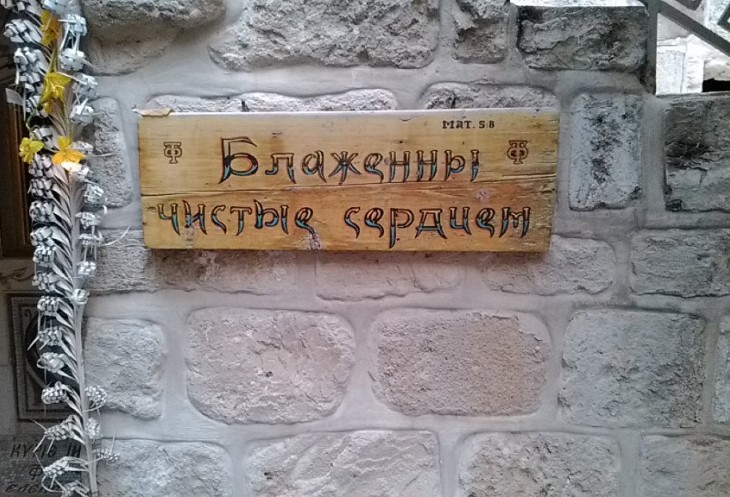 мат. 5:8
Блаженны
чистые сердцем